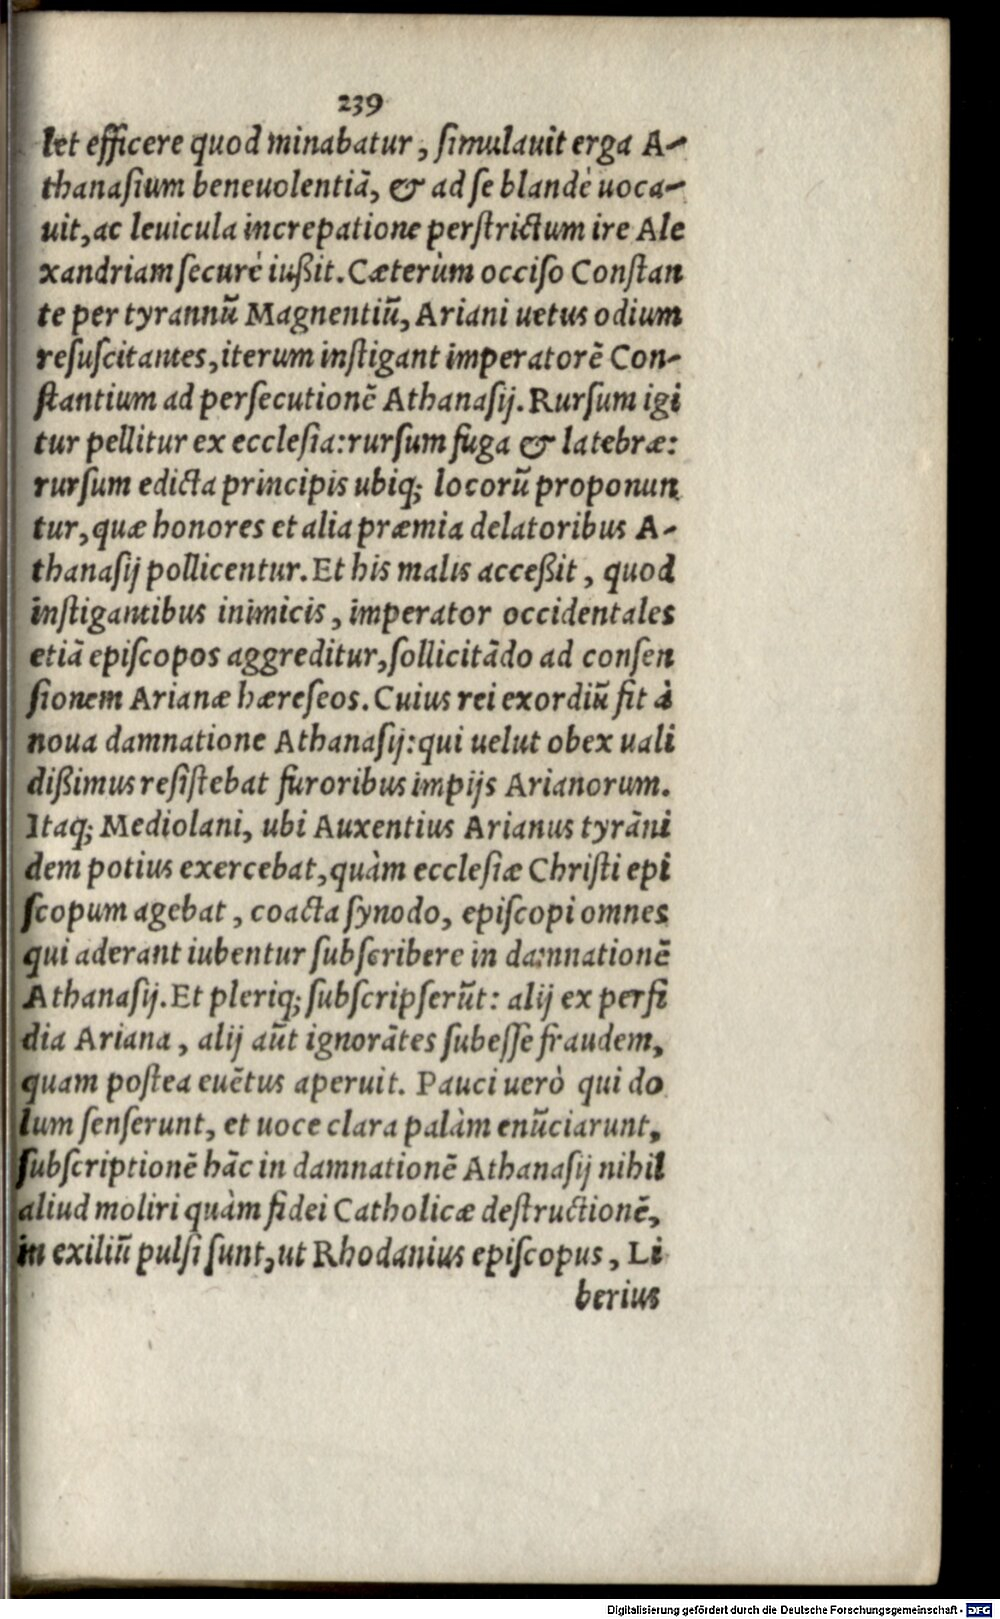 239
let efficere quod minabatur, ſimulauit erga A-
thanaſium beneuolentiā, & ad ſe blandè uoca-
uit, ac leuicula increpatione perſtrictum ire Ale
xandriam ſecurè iußit. Cæterùm occiſo Conſtan
te per tyrannū Magnentiū, Ariani uetus odium
reſuſcitantes, iterum inſtigant imperatorē Con-
ſtantium ad perſecutionē Athanaſij. Rurſum igi
tur pellitur ex eccleſia: rurſum fuga & latebræ:
rurſum edicta principis ubiq; locorū proponun
tur, quæ honores et alia præmia delatoribus A-
thanaſij pollicentur. Et his malis acceßit, quod
inſtigantibus inimicis, imperator occidentales
etiā epiſcopos aggreditur, ſollicitādo ad conſen
ſionem Arianæ hæreſeos. Cuius rei exordiū fit à
noua damnatione Athanaſij: qui uelut obex uali
dißimus reſiſtebat furoribus impijs Arianorum.
Itaq; Mediolani, ubi Auxentius Arianus tyrāni
dem potius exercebat, quàm eccleſiæ Chriſti epi
ſcopum agebat, coacta ſynodo, epiſcopi omnes
qui aderant iubentur ſubſcribere in damnationē
Athanaſij. Et pleriq; ſubſcripſerūt: alij ex perfi
dia Ariana, alij aūt ignorātes ſubeſſe fraudem,
quam poſtea euētus aperuit. Pauci uerò qui do
lum ſenſerunt, et uoce clara palàm enūciarunt,
ſubſcriptionē hāc in damnationē Athanaſij nihil
aliud moliri quàm fidei Catholicæ deſtructionē,
in exiliū pulſi ſunt, ut Rhodanius epiſcopus, Li
berius
Digitalisierung gefördert durch die Deutsche Forschungsgemeinschaft - DFG